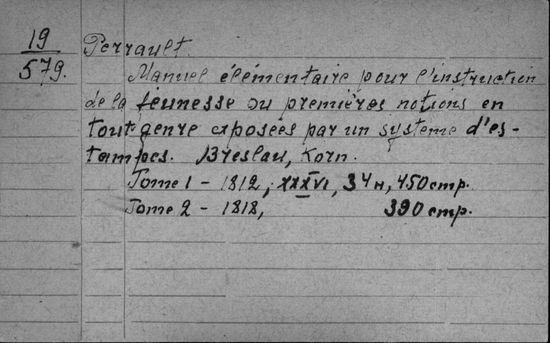 19
579.
Perrault.
Manuel élémentaire pour l'instruction
de la jeunesse ou premières notions en
tout genre exposées par un systeme d'es-
tampes. Breslau, Korn.
Tome 1 - 1812, XXXVI, 34 н, 450 стр.
Tome 2 - 1818, 390 стр.